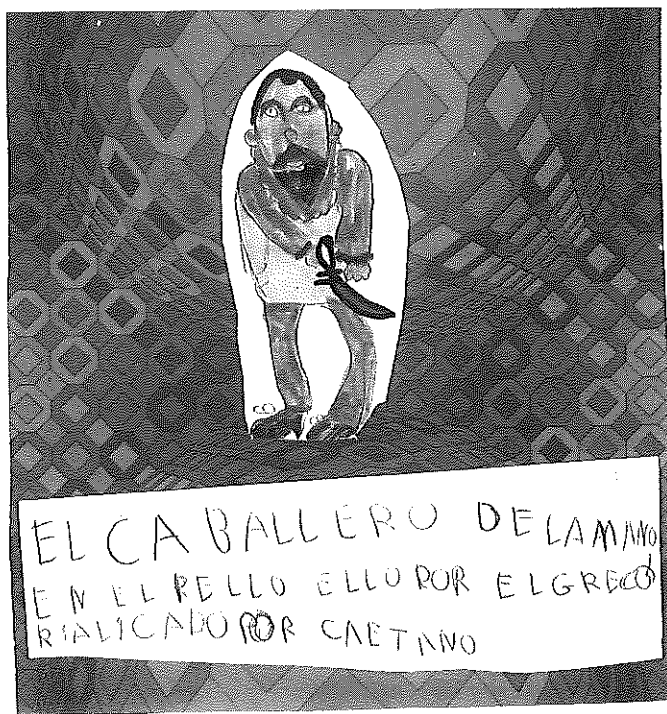 EL CABALLERO DE LA MANO
EN EL RELLO ELLO POR EL GRECO
RIALICADO POR CAETANO